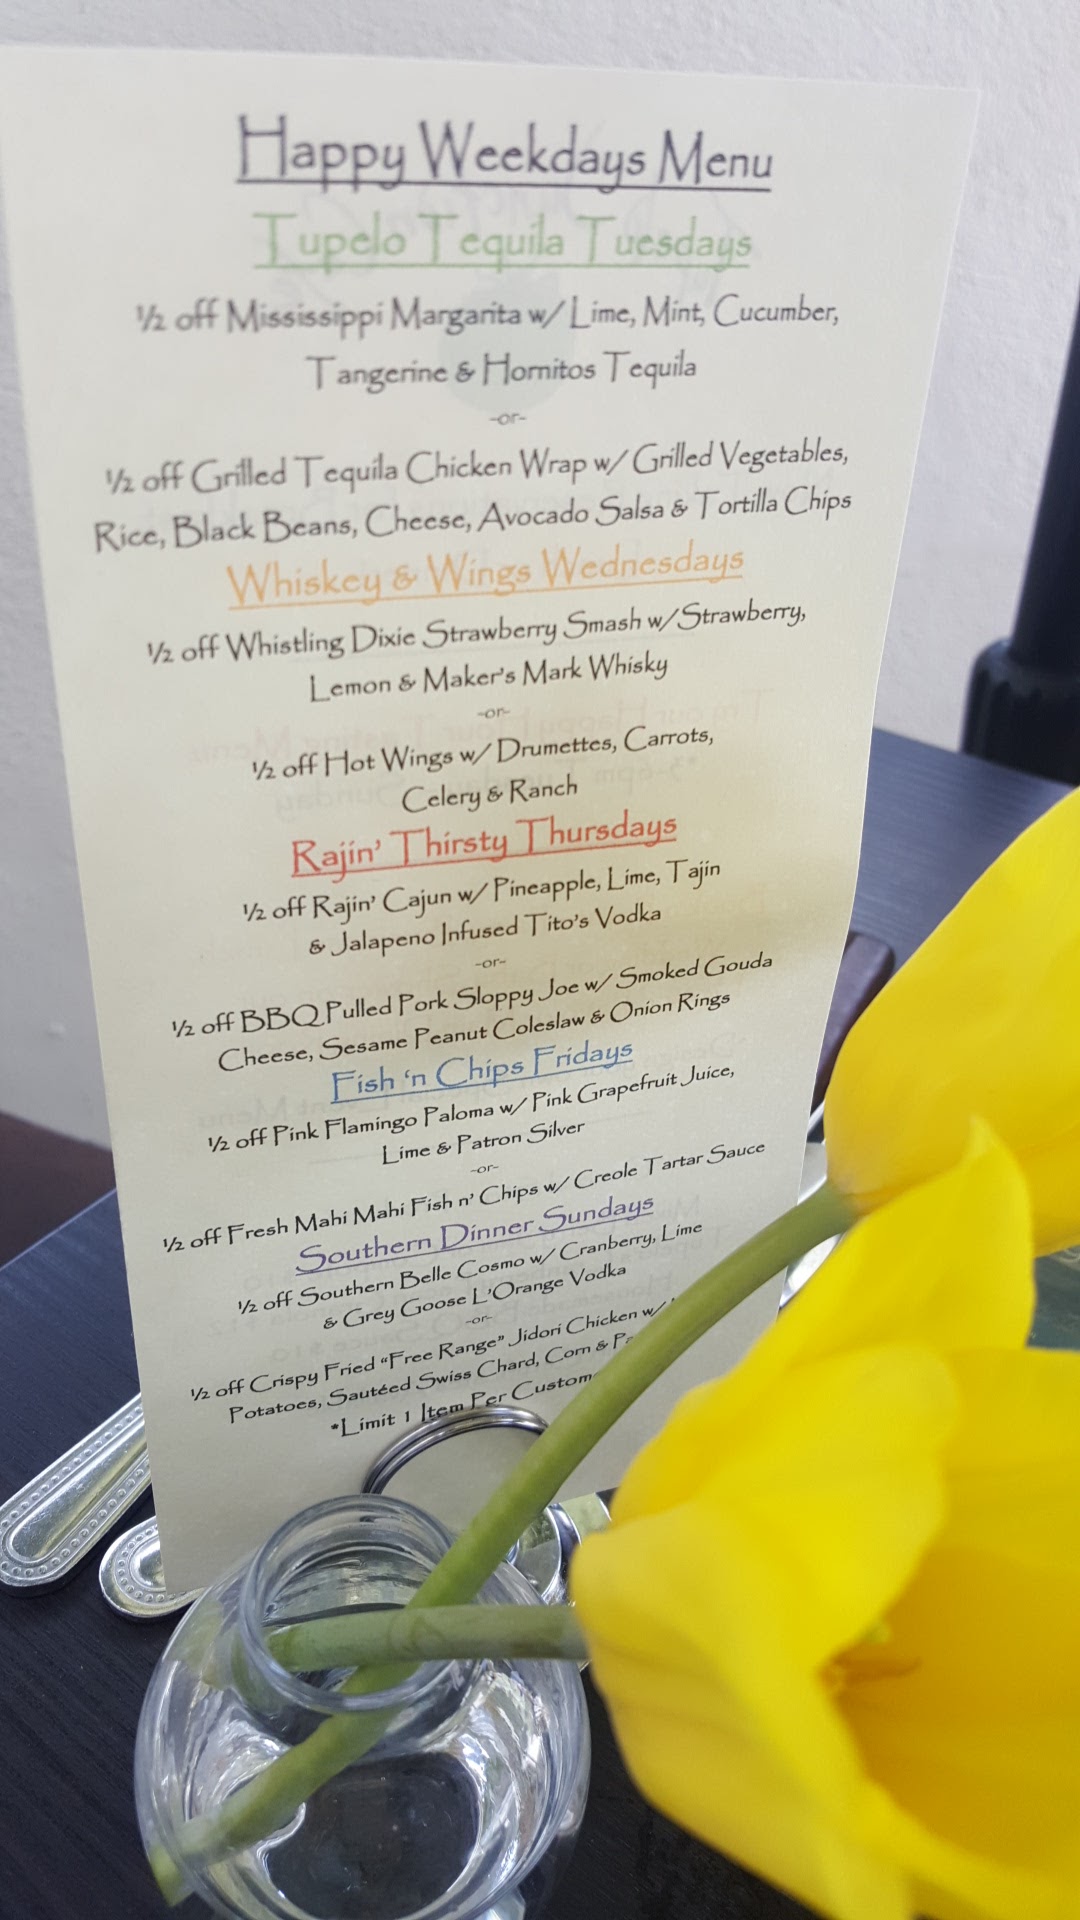 Happy Weekdays Menu
Tupelo Tequila Tuesdays
½ off Mississippi Margarita w/ Lime, Mint, Cucumber,
Tangerine & Hornitos Tequila
-or-
½ off Grilled Tequila Chicken Wrap w/ Grilled Vegetables,
Rice, Black Beans, Cheese, Avocado Salsa & Tortilla Chips
Whiskey & Wings Wednesdays
½ off Whistling Dixie Strawberry Smash w/Strawberry,
Lemon & Maker's Mark Whisky
-or-
½ off Hot Wings w/ Drumettes, Carrots,
Celery & Ranch
Rajin' Thirsty Thursdays
½ off Rajin' Cajun w/ Pineapple, Lime, Tajin
& Jalapeno Infused Tito's Vodka
-or-
½ off BBQ Pulled Pork Sloppy Joe w/ Smoked Gouda
Cheese, Sesame Peanut Coleslaw & Onion Rings
Fish 'n Chips Fridays
½ off Pink Flamingo Paloma w/ Pink Grapefruit Juice,
Lime & Patron Silver
-or-
½ off Fresh Mahi Mahi Fish n' Chips w/ Creole Tartar Sauce
Southern Dinner Sundays
½ off Southern Belle Cosmo w/ Cranberry, Lime
& Grey Goose L'Orange Vodka
-or-
½ off Crispy Fried "Free Range" Jidori Chicken w/
Potatoes, Sautéed Swiss Chard, Corn &
*Limit 1 Item Per